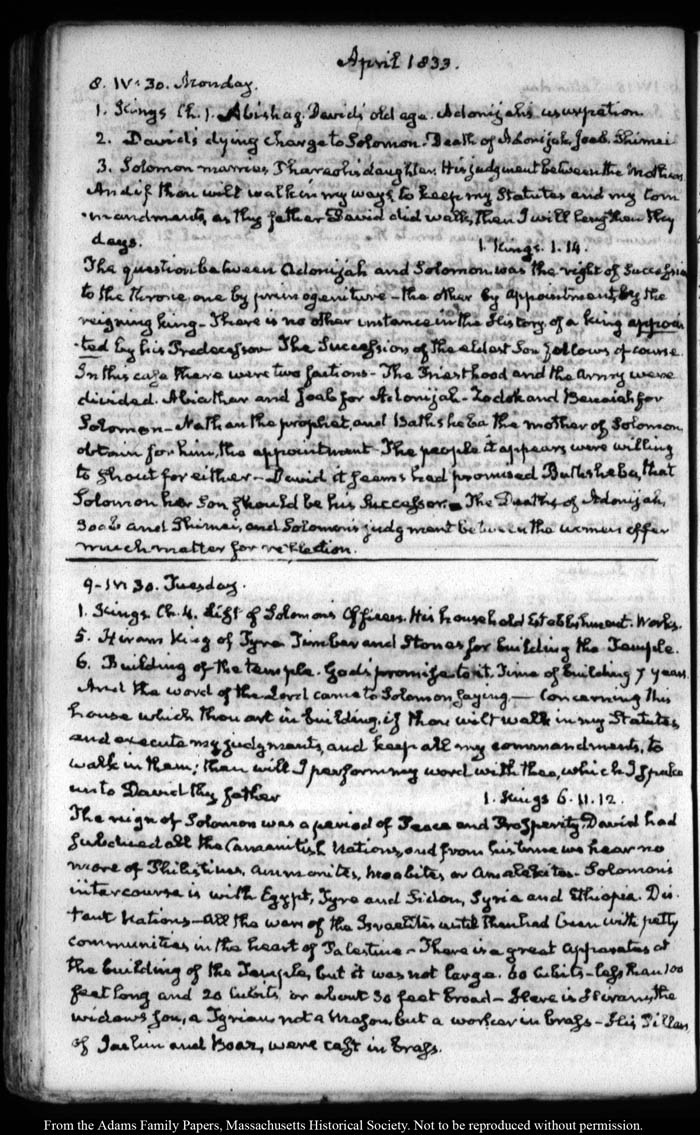 April 1833.
8. IV: 30. Monday.
1. Kings Ch. 1. Abishag. David's old age. Adonijah's usurpation
2. David's dying charge to Solomon. Death of Adonijah, Joab, Shimei
3. Solomon marries Pharaoh's daughter. His judgment between the Mothers
And if thou wilt walk in my ways, to keep my Statutes and my com
mandments, as thy father David did walk, then I will lengthen thy
days. 1. Kings. 1. 14.
The question between Adonijah and Solomon was the right of Succession
to the throne, one by primogeniture—the other by appointment, by the
reigning king—There is no other instance in the History of a king appoin
ted by his Predecessor. The Succession of the eldest Son follows of course.
In this case there were two factions—The Priesthood and the Army were
divided. Abiathar and Joab for Adonijah—Zadok and Benaiah for
Solomon—Nathan the prophet, and Bathsheba the mother of Solomon
obtain for him, the appointment—The people it appears were willing
to shout for either—David it seems had promised Bathsheba, that
Solomon her Son should be his Successor. The Deaths of Adonijah,
Joab and Shimei, and Solomon's judgment between the women offer
much matter for reflection.
9. IV: 30. Tuesday.
1. Kings Ch. 4. List of Solomons Officers. His household Establishment. Works.
5. Hiram King of Tyre Timber and Stones for building the Temple.
6. Building of the temple. God's promise to it. Time of building 7 years
And the word of the Lord came to Solomon saying—Concerning this
house which thou art in building, if thou wilt walk in my Statutes,
and execute my judgments, and keep all my commandments, to
walk in them; then will I perform my word with thee, which I spake
unto David thy father 1. Kings 6. 11. 12.
The reign of Solomon was a period of Peace and Prosperity. David had
subdued all the Canaanitish Nations, and from his time we hear no
more of Philistines, Ammonites, Moabites or Amalekites. Solomon's
intercourse is with Egypt, Tyre and Sidon, Syria and Ethiopia. Dis
tant Nations—All the wars of the Israelites until then had been with petty
communities in the heart of Palestine—There is a great apparatus at
the building of the Temple, but it was not large. 60 Cubits—less than 100
feet long and 20 Cubits, or about 30 feet broad—Here is Hiram, the
widow's son, a Tyrian, not a Mason, but a worker in brass—His Pillars
of Jachin and Boaz, were cast in brass.
From the Adams Family Papers, Massachusetts Historical Society. Not to be reproduced without permission.